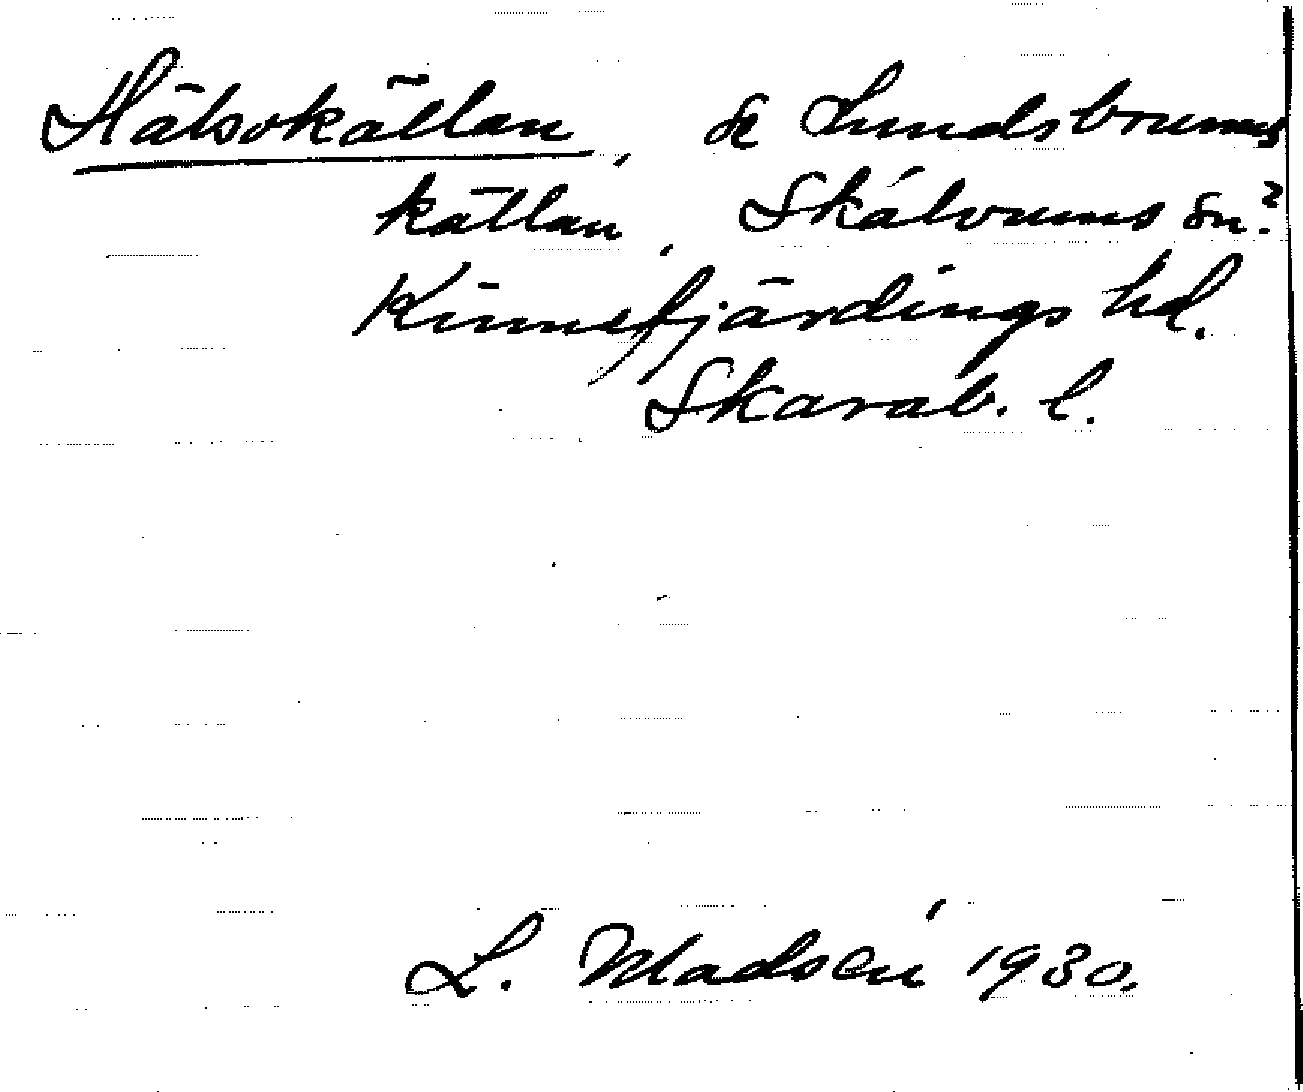 Hälsokällan, se Lundsbrunns
källan, Skálvums sn?
Kinnefjärdings hd.
Skarab. l.
L. Madsén 1930.